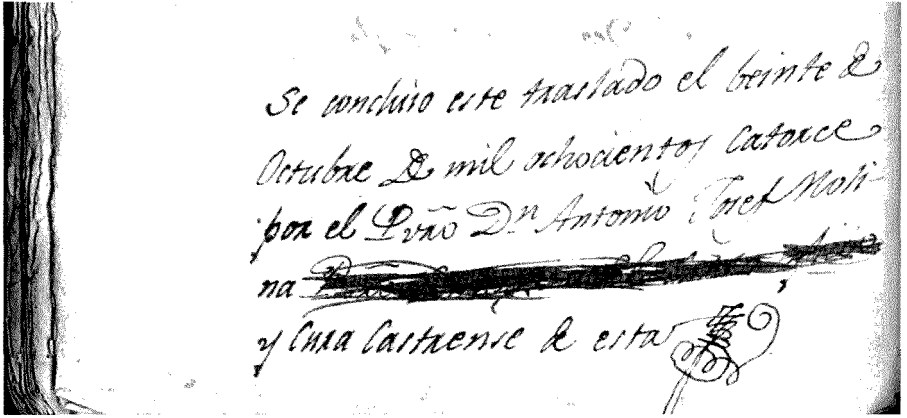 Se concluio este traslado el beinte de
Octubre de mil ochocientos catorce
por el Pvro Dn Antonio Josef Moli-
na
y Cura Castrense de esta